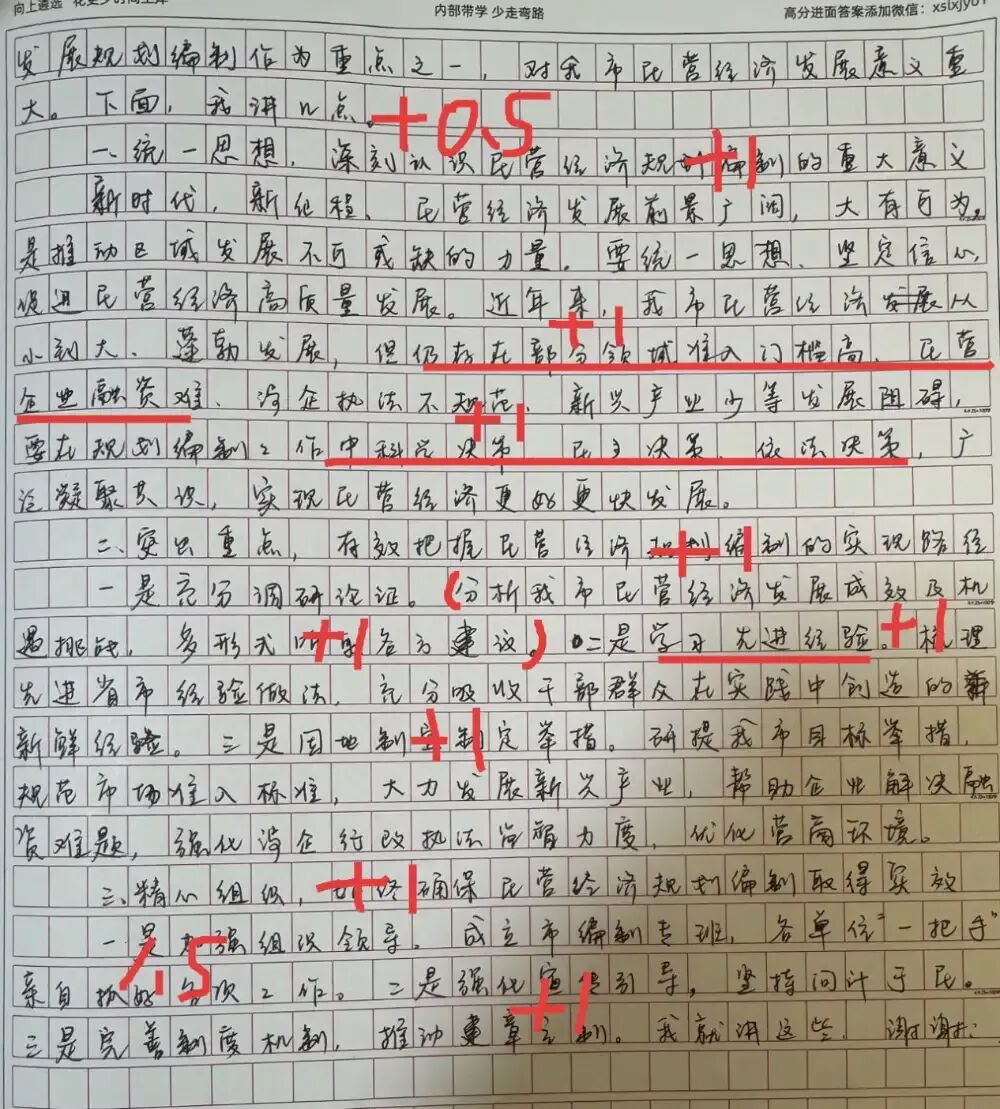 向上遴选
内部带学 少走弯路
高分进面答案添加微信：xslxjy01
发展规划编制作为重点之一，对我市民营经济发展意义重
大。下面，我讲几点。+0.5
一、统一思想，深刻认识民营经济规划编制的重大意义 +1
新时代，新征程，民营经济发展前景广阔，大有可为。
是推动区域发展不可或缺的力量。要统一思想、坚定信心，
促进民营经济高质量发展。近年来，我市民营经济发展从
小到大、蓬勃发展，但仍存在部分领域准入门槛高、民营 +1
企业融资难、涉企执法不规范、新兴产业少等发展阻碍，
要在规划编制工作中科学决策、民主决策、依法决策，广 +1
泛凝聚共识，实现民营经济更好更快发展。
二、突出重点，有效把握民营经济规划编制的实现路径 +1
一是充分调研论证。（分析我市民营经济发展成效及机
遇挑战，多形式听取各方建议。）二是学习先进经验。梳理 +1 +1
先进省市经验做法，充分吸收干部群众在实践中创造的
新鲜经验。三是因地制宜制定举措。研提我市目标举措， +1
规范市场准入标准，大力发展新兴产业，帮助企业解决融
资难题，强化涉企行政执法监督力度，优化营商环境。
三、精心组织，始终确保民营经济规划编制取得实效 +1
一是加强组织领导。成立市编制专班，各单位“一把手”
亲自抓好各项工作。二是强化宣传引导，坚持问计于民。 1.5
三是完善制度机制，推动建章立制。我就讲这些，谢谢！ +1